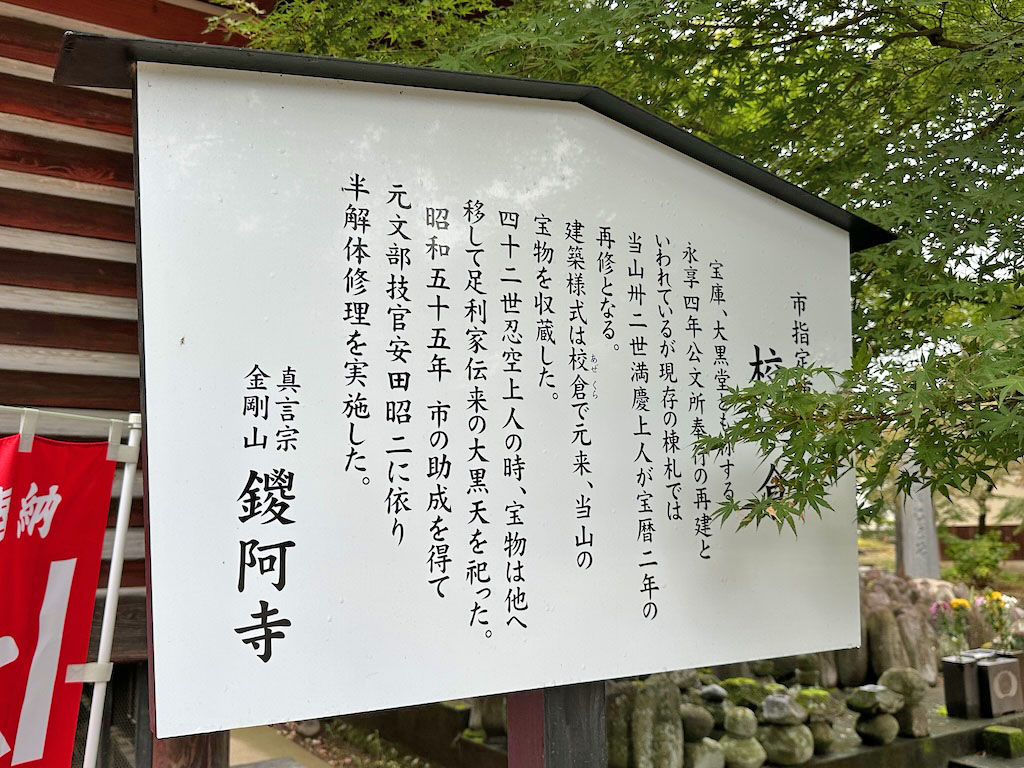 市指定
校倉
宝庫、大黒堂とも称する
永享四年公文所奉行の再建と
いわれているが現存の棟札では
当山卅二世満慶上人が宝暦二年の
再修となる。
建築様式は校倉で元来、当山の
あぜくら
宝物を収蔵した。
四十二世忍空上人の時、宝物は他へ
移して足利家伝来の大黒天を祀った。
昭和五十五年 市の助成を得て
元文部技官安田昭二に依り
半解体修理を実施した。
真言宗
金剛山
鑁阿寺
納